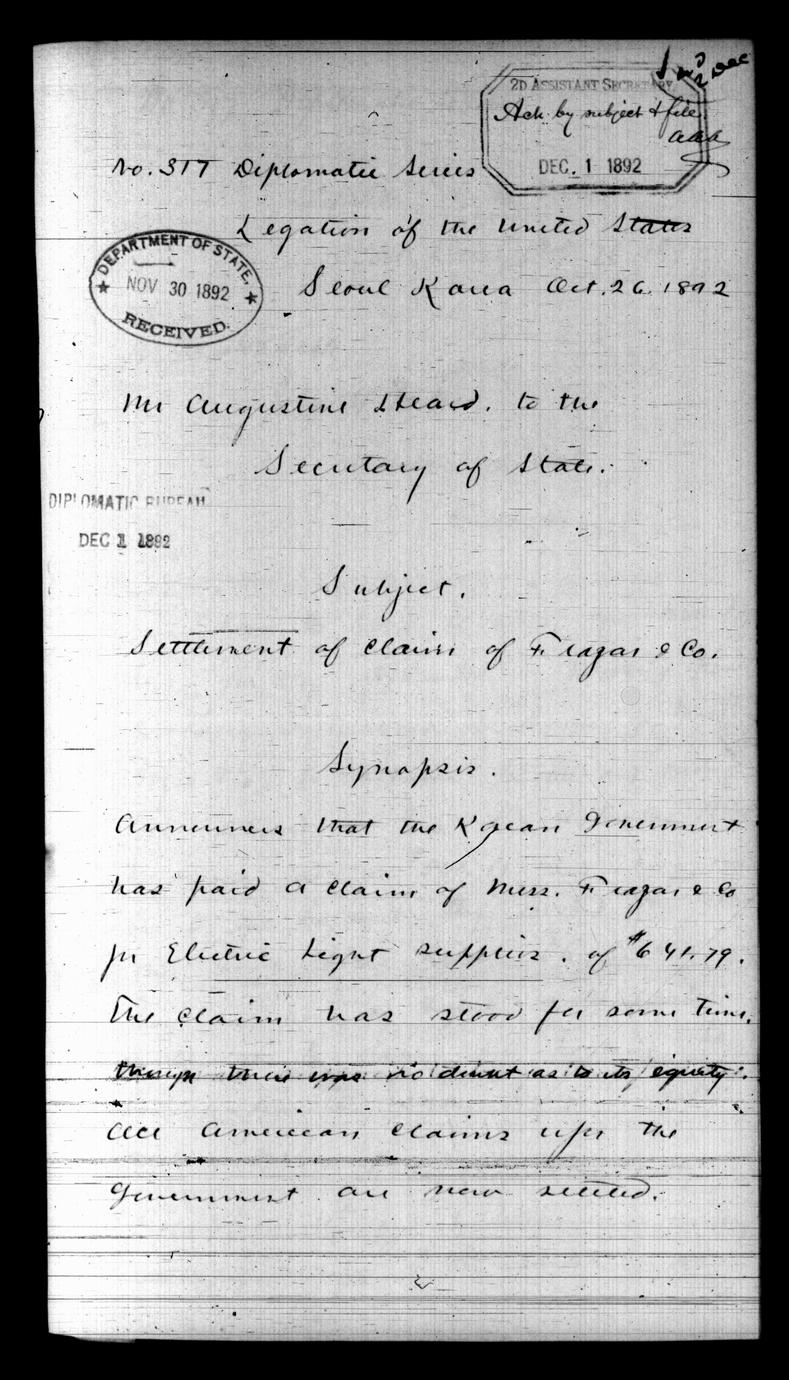 2 Dec
2D ASSISTANT SECRETARY.
Ack. by subject & file.
AAA
DEC. 1 1892
No. 317 Diplomatic Series
Legation of the United States
DEPARTMENT OF STATE,
NOV 30 1892
RECEIVED.
Seoul Korea Oct. 26. 1892
Mr Augustine Heard. to the
Secretary of State.
DIPLOMATIC BUREAU
DEC 1 1892
Subject.
Settlement of claim of Frazar & Co.
Synopsis.
Announces that the Korean Government
has paid a claim of Mess. Frazar & Co
for Electric Light supplies. of $641.79.
The claim has stood for some time,
though there was no doubt as to its equity.
All American claims upon the
Government are now settled.